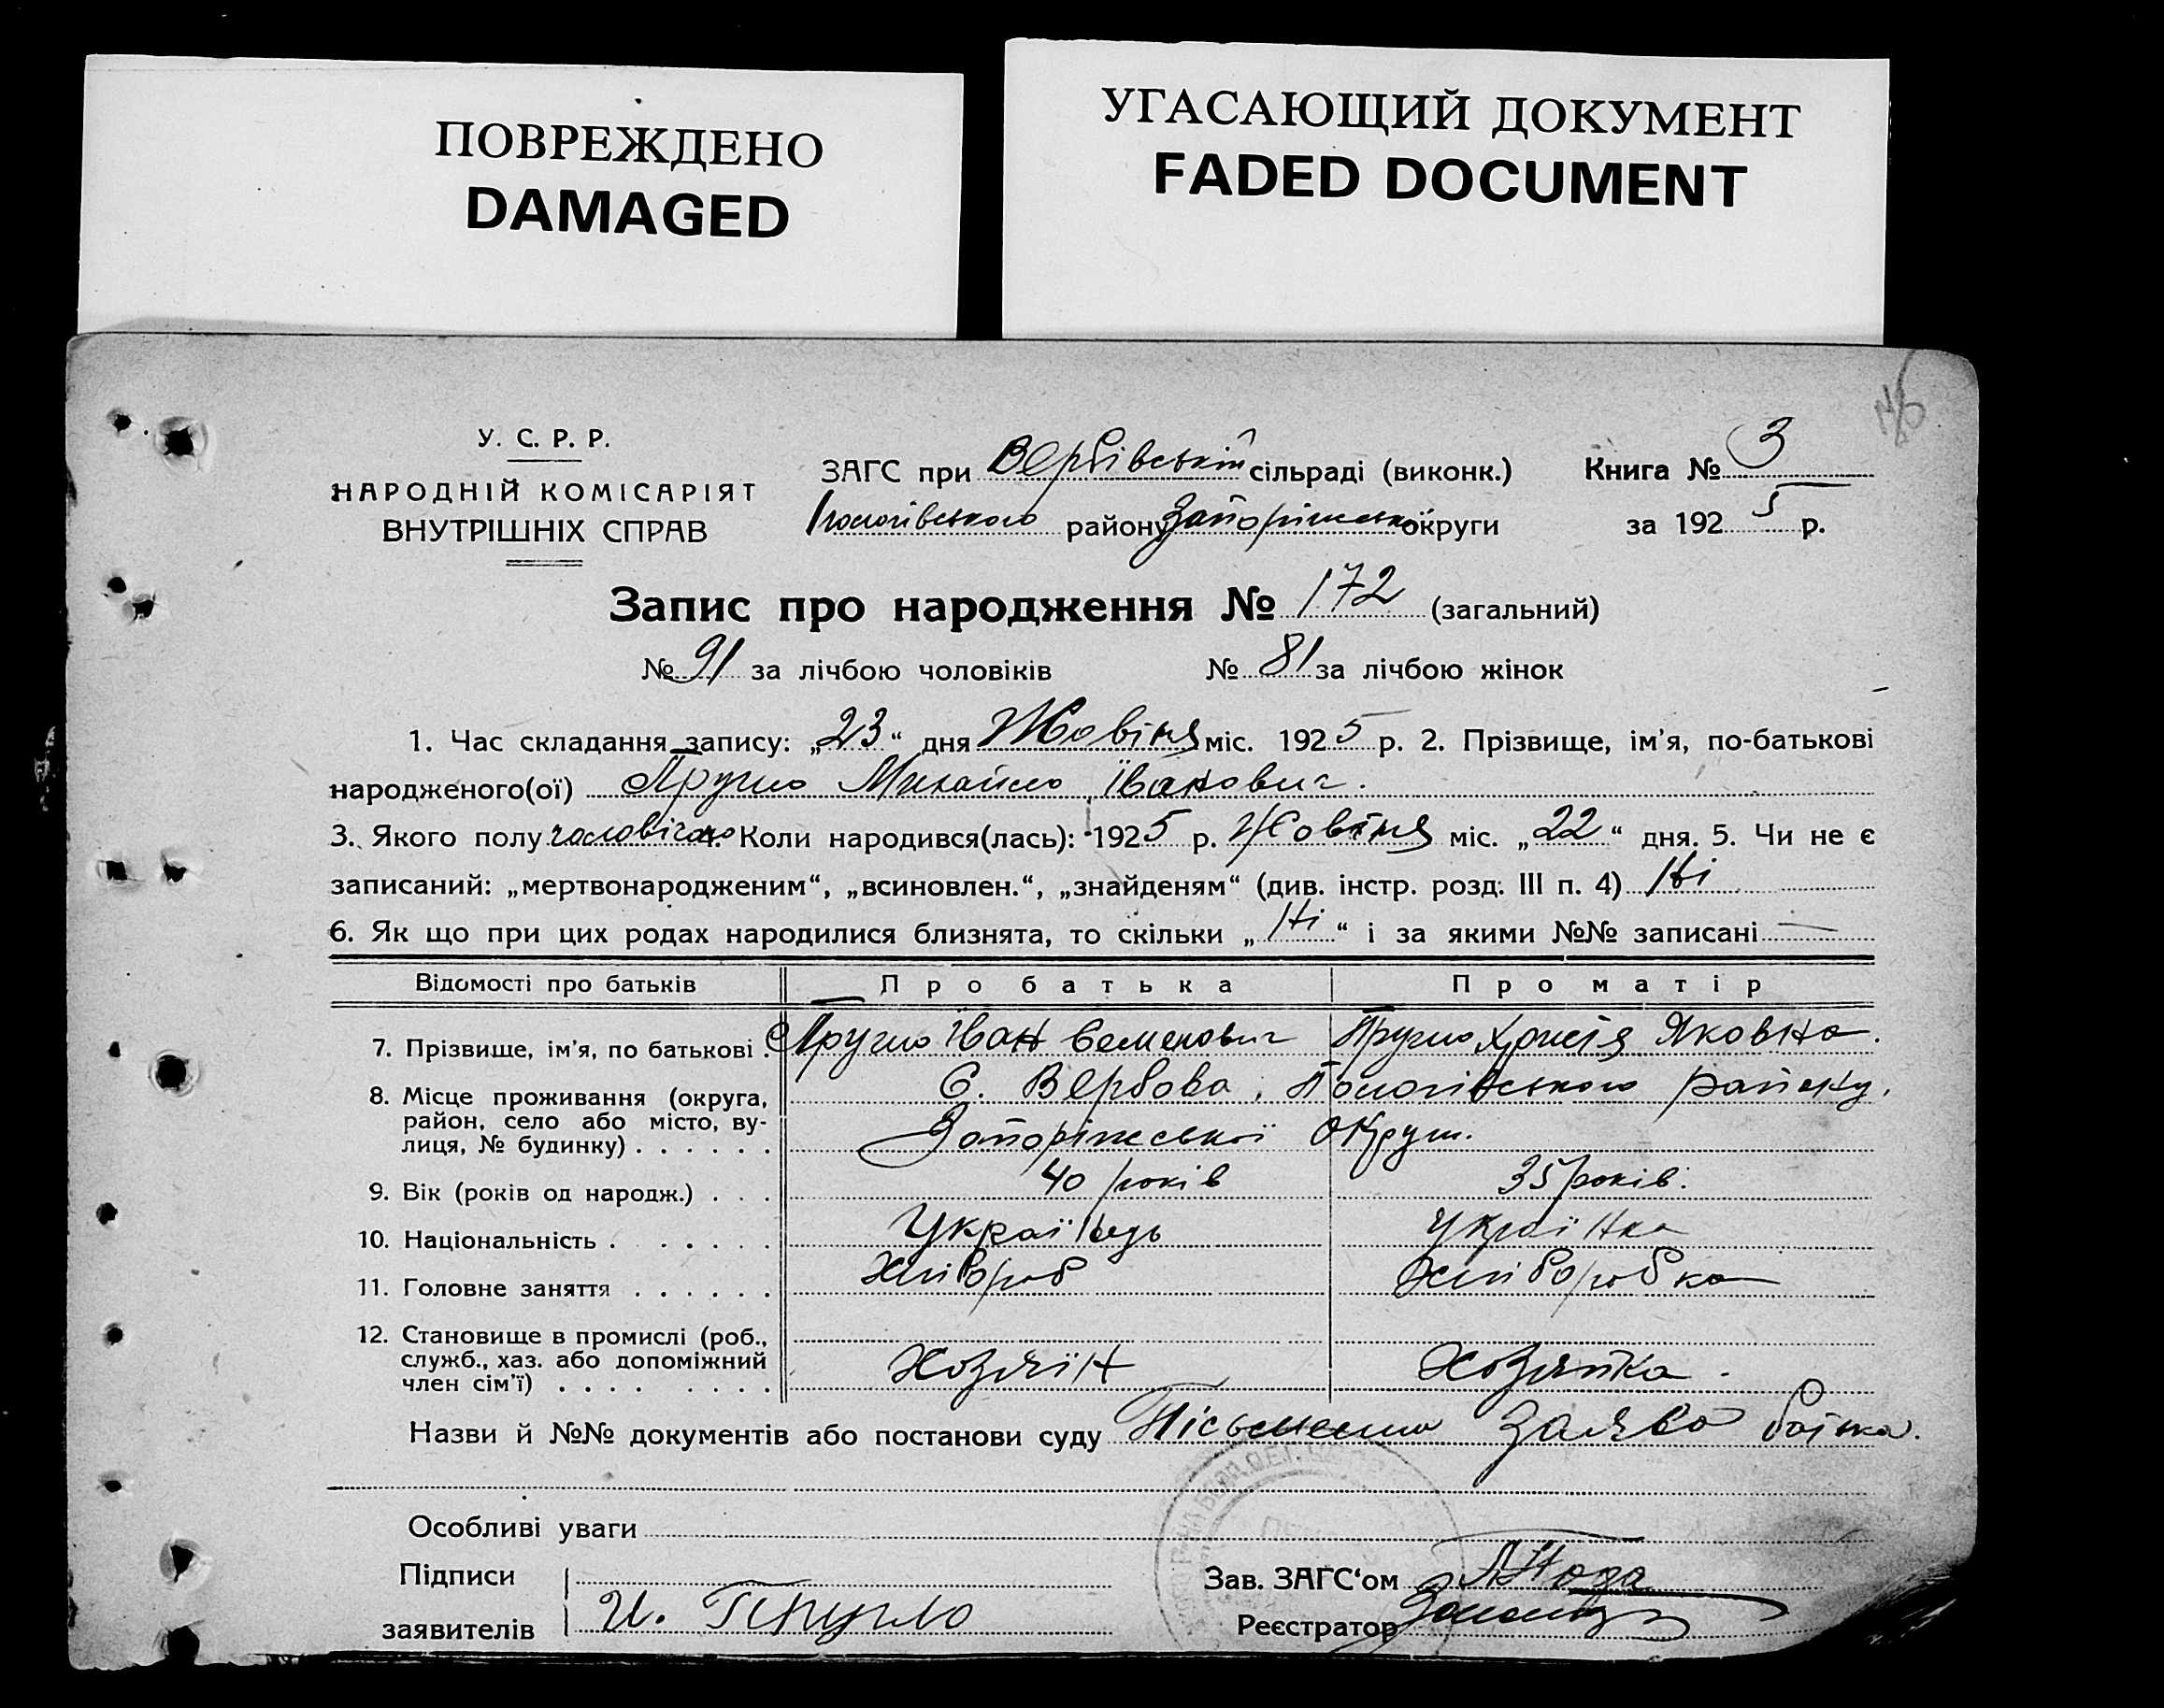 ПОВРЕЖДЕНО
DAMAGED
УГАСАЮЩИЙ ДОКУМЕНТ
FADED DOCUMENT
У. С. Р. Р.
НАРОДНІЙ КОМІСАРІЯТ
ВНУТРІШНІХ СПРАВ
ЗАГС при Вербівській сільраді (виконк.) Книга № 3
Пологівського району Запоріжської округи за 1925 р.
Запис про народження № 172 (загальний)
№ 91 за лічбою чоловіків № 81 за лічбою жінок
1. Час складання запису: „23“ дня Жовтня міс. 1925 р. 2. Прізвище, ім'я, по-батькові
народженого(ої) Пругло Михайло Іванович.
3. Якого полу чоловічого 4. Коли народився(лась): 1925 р. Жовтня міс. „22“ дня. 5. Чи не є
записаний: „мертвонародженим“, „всиновлен.“, „знайденям“ (див. інстр. розд. III п. 4) Ні
6. Як що при цих родах народилися близнята, то скільки „Ні“ і за якими №№ записані —
Відомості про батьків Про батька Про матір
7. Прізвище, ім'я, по батькові. Пругло Іван Семенович Пругло Христя Яковна.
8. Місце проживання (округа, район, село або місто, вулиця, № будинку) С. Вербова, Пологівського району,
Запоріжської Округи.
9. Вік (років од народж.) 40 років 35 років.
10. Національність Українець Українка
11. Головне заняття Хлібороб Хліборобка
12. Становище в промислі (роб., служб., хаз. або допоміжний член сім'ї) Хозяїн Хозяйка.
Назви й №№ документів або постанови суду Пісьменна Заява батька.
Особливі уваги
Підписи Зав. ЗАГС‘ом
заявителів И. Пругло Реєстратор